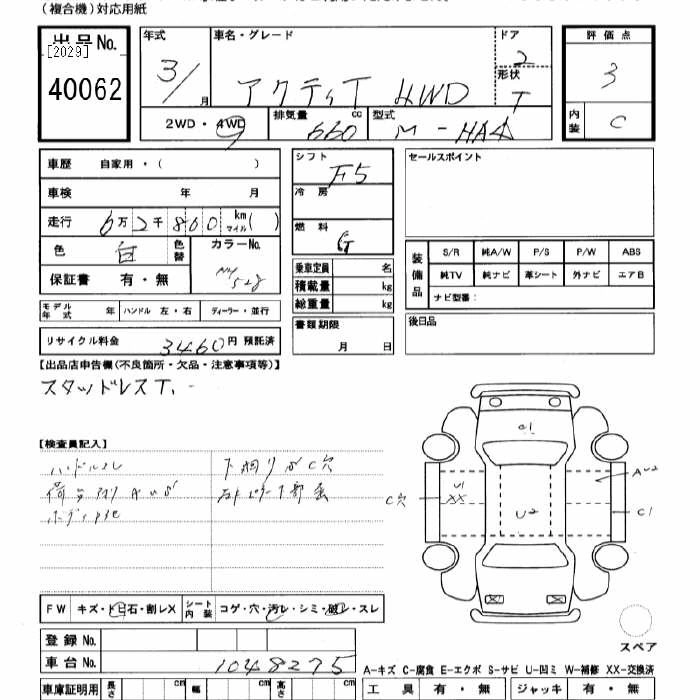 (複合機)対応用紙
出品No. [2029] 40062
年式 3/ 月
車名・グレード アクティT 4WD
ドア 2
形状 T
評価点 3
内装 C
2WD・4WD
排気量 660 cc
型式 M-HA4
車歴 自家用・( )
シフト F5
セールスポイント
車検 年 月
冷房
走行 6万2千860 km マイル( )
燃料 G
色 白 色替
カラーNo. NH 528
装備品 S/R 純A/W P/S P/W ABS
純TV 純ナビ 革シート 外ナビ エアB
ナビ型番:
保証書 有・無
乗車定員 名
積載量 kg
総重量 kg
モデル年式 年 ハンドル 左・右 ディーラー・並行
書類期限 月 日
後日品
リサイクル料金 3460円 預託済
【出品店申告欄(不良箇所・欠品・注意事項等)】
スタッドレスT.
【検査員記入】
ハンドルスレ
下廻りサビC穴
C1
U1
XX
U2
C穴
AU2
C1
FW キズ・トビ石・割レX
シート内装 コゲ・穴・汚レ・シミ・破レ・スレ
スペア
登録No.
車台No. 1048275
A-キズ C-腐食 E-エクボ S-サビ U-凹ミ W-補修 XX-交換済
車庫証明用 長さ cm 幅 cm 高さ cm
工具 有・無 ジャッキ 有・無